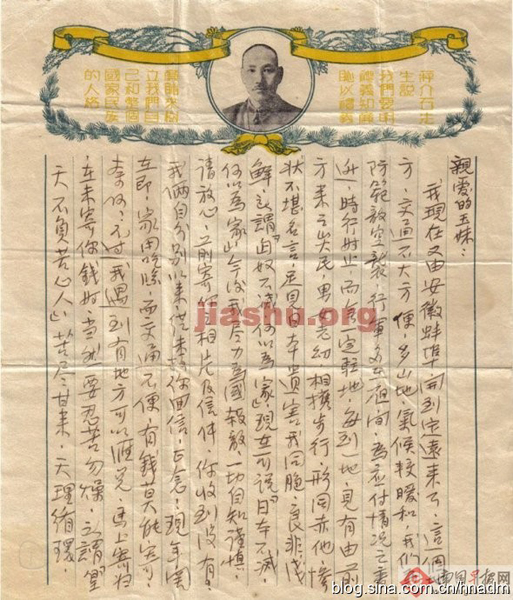 蔣介石先
生說
我們要明
禮義知廉
恥以禮義
廉恥來樹
立我們自
己和整個
國家民族
的人格
親愛的玉妹：
我現在又由安徽蚌埠開到定遠來了，這
方，交通不大方便，多山地氣候較暖和，我們
防範敵空襲，行軍多在夜間，為應付情況之
時行時止，而無定駐地，每到一地，見有由前
方來之難民，男女老幼，相携步行，形同
狀不堪名言，足日本害我同胞，良非淺
鮮，謂"匈奴不滅何以為家，現在可說"日本不滅
何以為家"今後我尽力為國報敵，一切自知謹慎，
請放心，前寄你相片及信件，你收到没有？
我倆自分別以來從未接你回信，甚念，現年関
在即，家用而交通不便，有錢莫能寄可
奈何；不过我遇到有地方可以滙兌，馬上寄归
在未寄你錢時，当然要忍苦勿燥，文謂"皇
天不負苦心人"苦尽甘來，天理循環，
jiashu.org
blog.sina.com.cn/hnadm